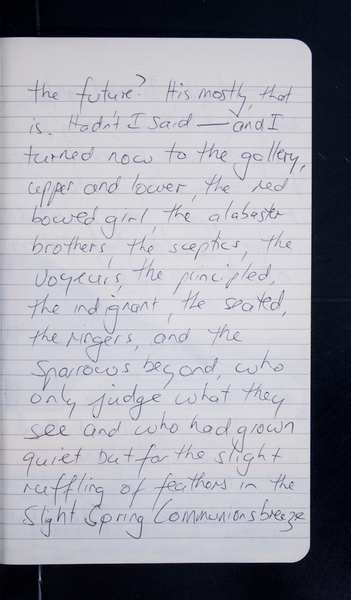 the future? His mostly, that
is. Hadn't I said — and I
turned now to the gallery,
upper and lower, the red
bowed girl, the alabaster
brothers, the sceptics, the
voyeurs, the principled,
the indignant, the seated,
the ringers, and the
sparrows beyond, who
only judge what they
see and who had grown
quiet but for the slight
ruffling of feathers in the
slight Spring Communions breeze